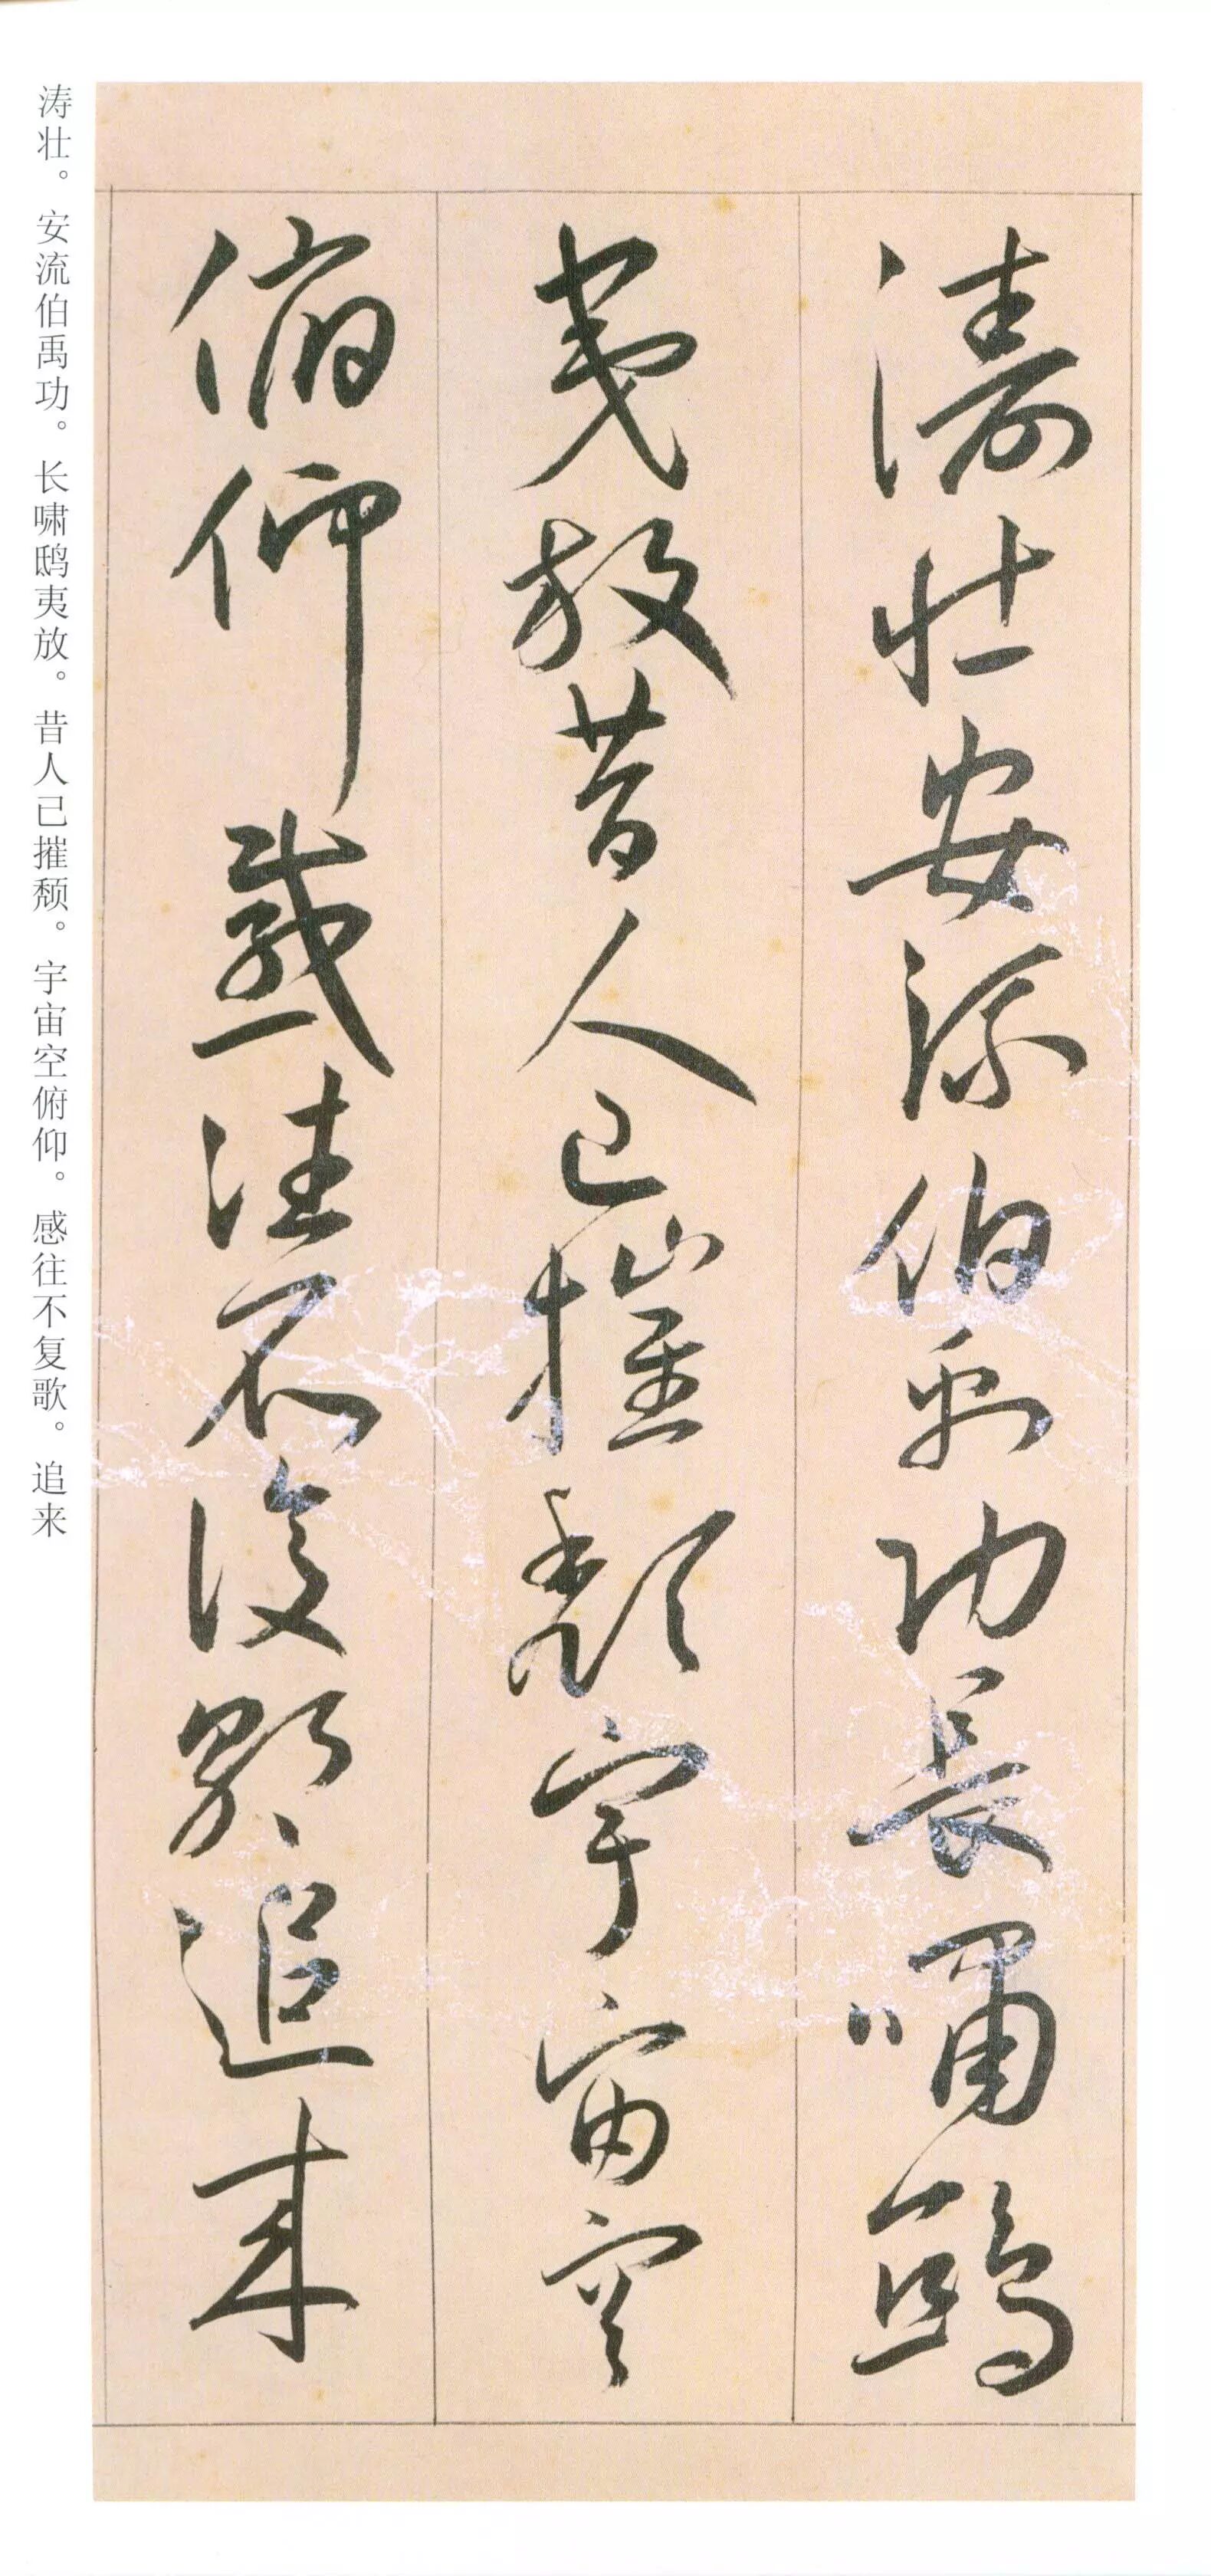 濤壯安流伯禹功長嘯鴟
夷放昔人已摧頽宇宙空
俯仰感往不復歌追来
涛壮。安流伯禹功。长啸鸱夷放。昔人已摧颓。宇宙空俯仰。感往不复歌。追来